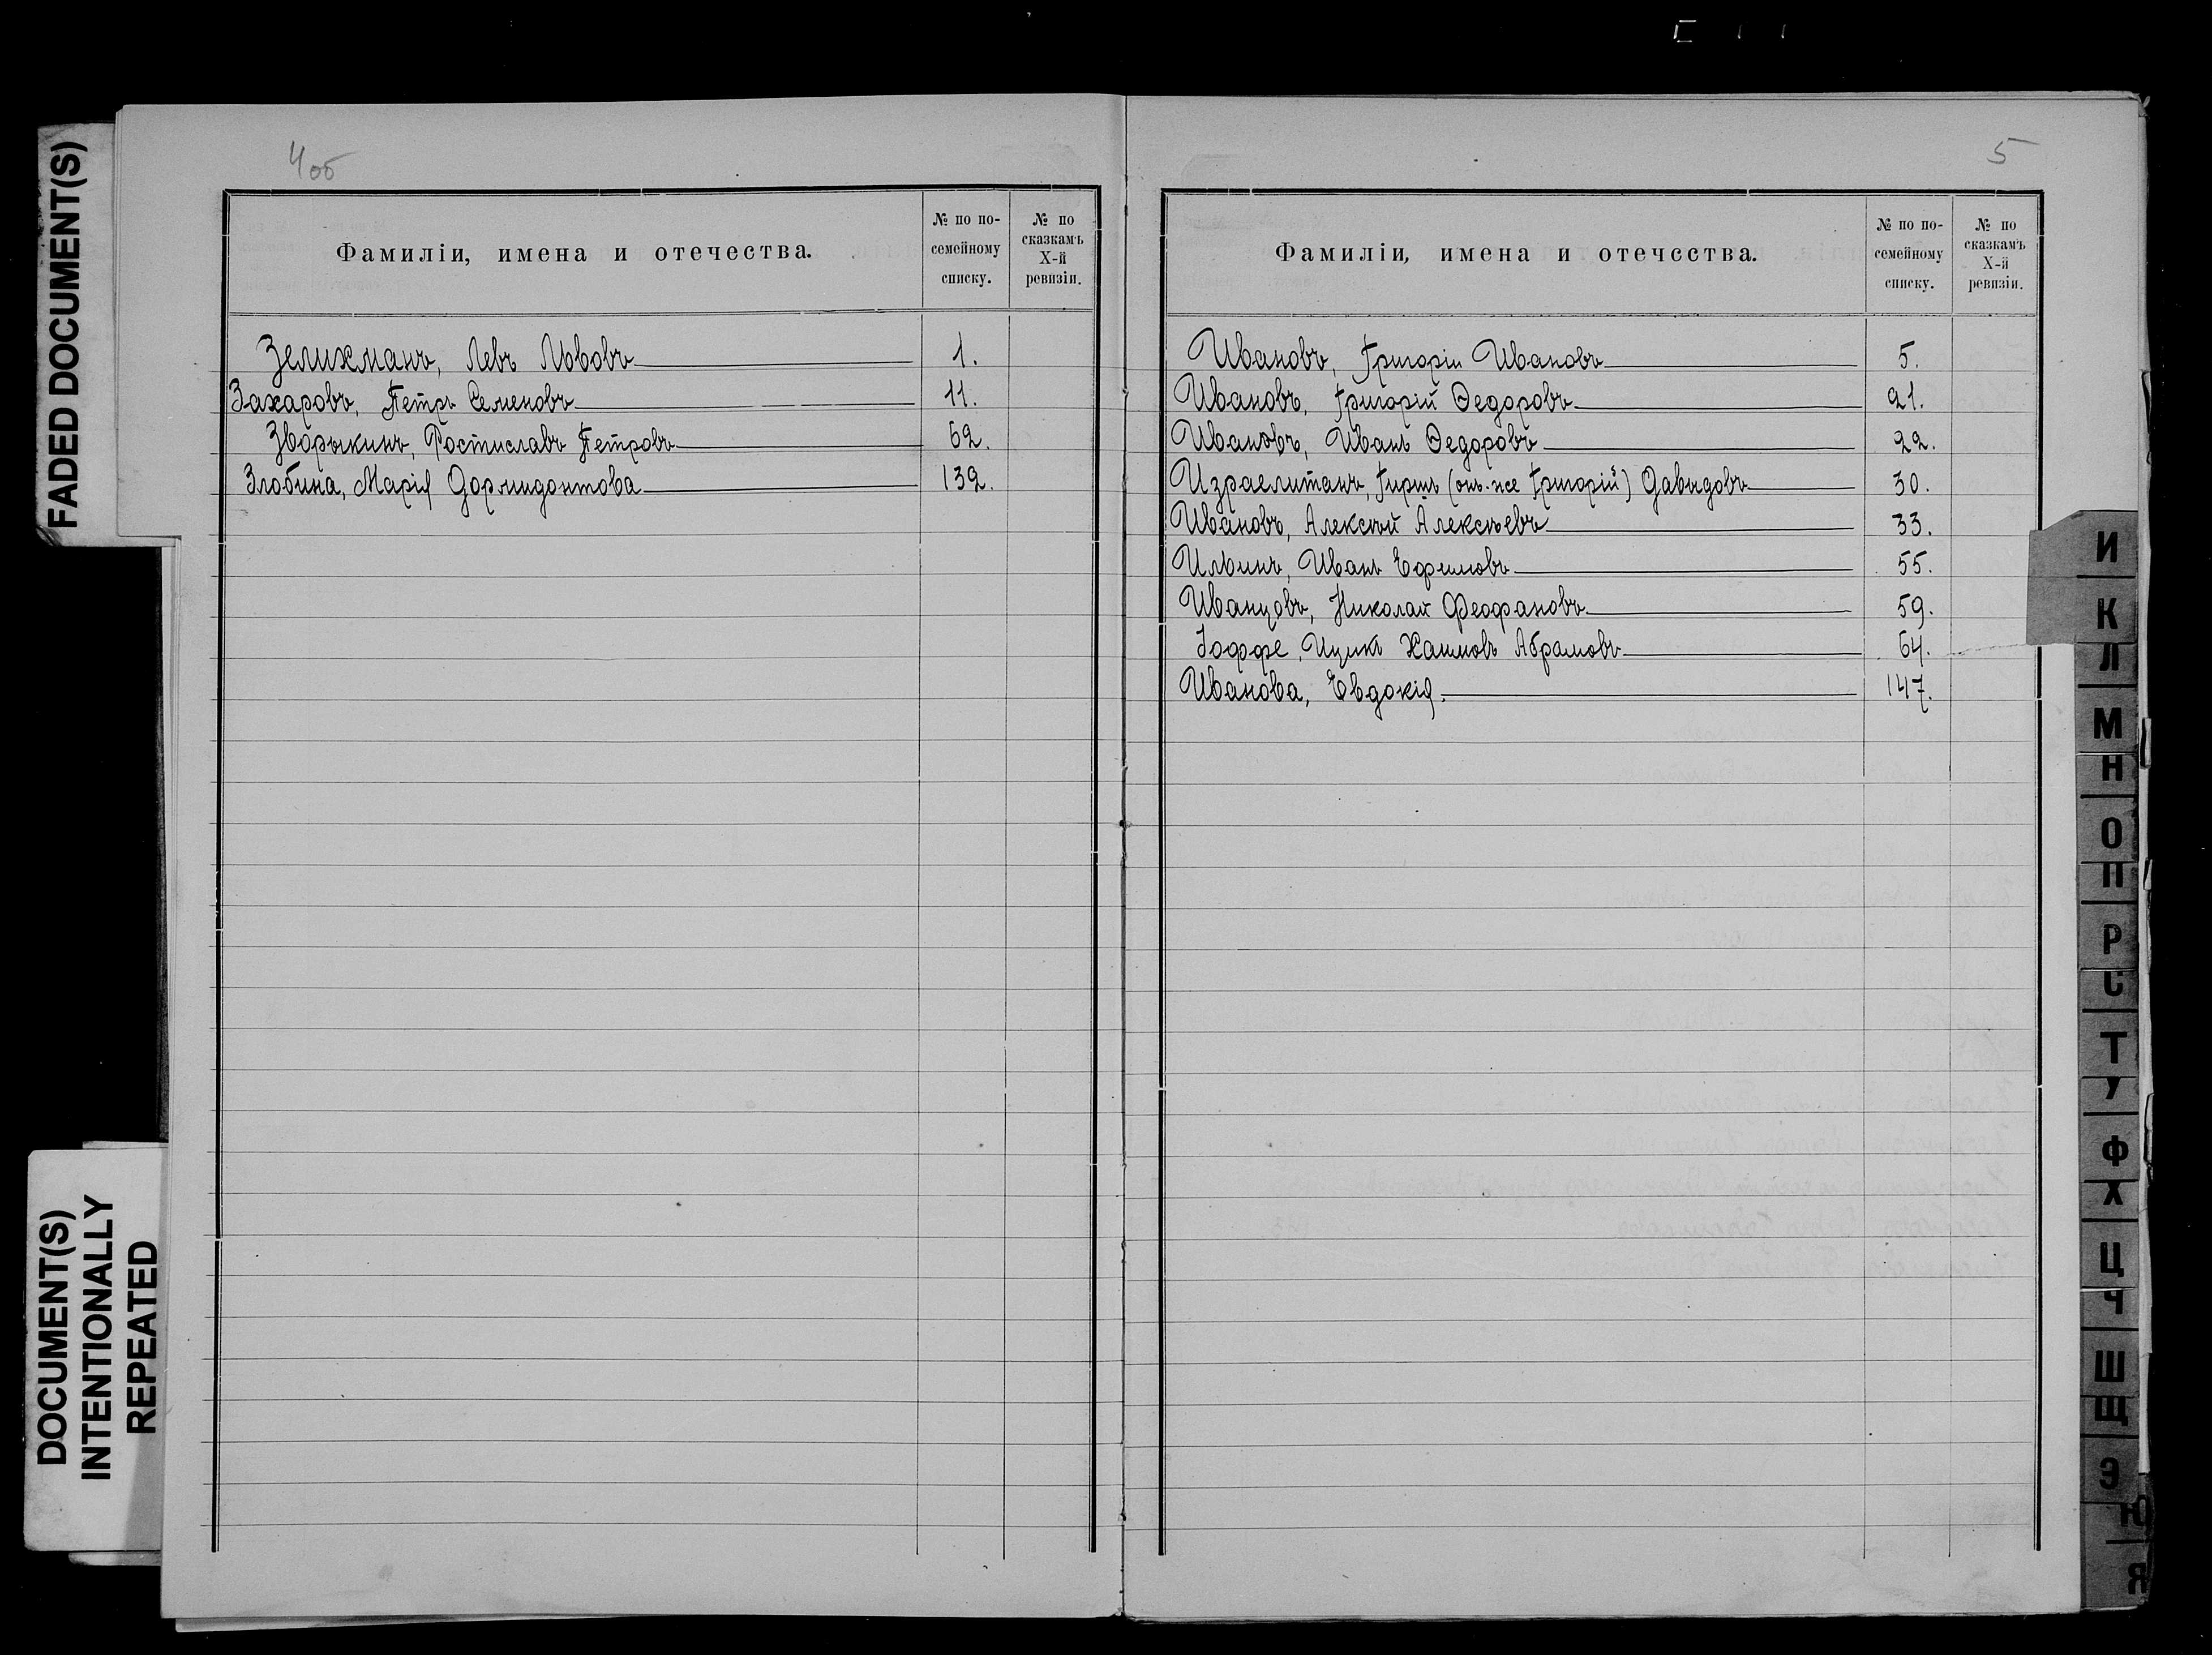 FADED DOCUMENT(S)
DOCUMENT(S)
INTENTIONALLY
REPEATED
4 об
Фамиліи, имена и отечества.
№ по по-
семейному
списку.
№ по
сказкамъ
X-й
ревизіи.
Зелихманъ, Левъ Львовъ 1.
Захаровъ, Петръ Семеновъ 11.
Зворыкинъ, Ростиславъ Петровъ 62.
Злобина, Марія Дормидонтова 132.
5
Фамиліи, имена и отечества.
№ по по-
семейному
списку.
№ по
сказкамъ
X-й
ревизіи.
Ивановъ, Григорій Ивановъ 5.
Ивановъ, Григорій Ѳедоровъ 21.
Ивановъ, Иванъ Ѳедоровъ 22.
Израелитанъ, Гиршъ (онъ-же Григорій) Давыдовъ 30.
Ивановъ, Алексѣй Алексѣевъ 33.
Ильинъ, Иванъ Ефимовъ 55.
Иванцовъ, Николай Феофановъ 59.
Іоффе, Ицикъ Хаимовъ Абрамовъ 64.
Иванова, Евдокія. 147.
И
К
Л
М
Н
О
П
Р
С
Т
У
Ф
Х
Ц
Ч
Ш
Щ
Э
Ю
Я